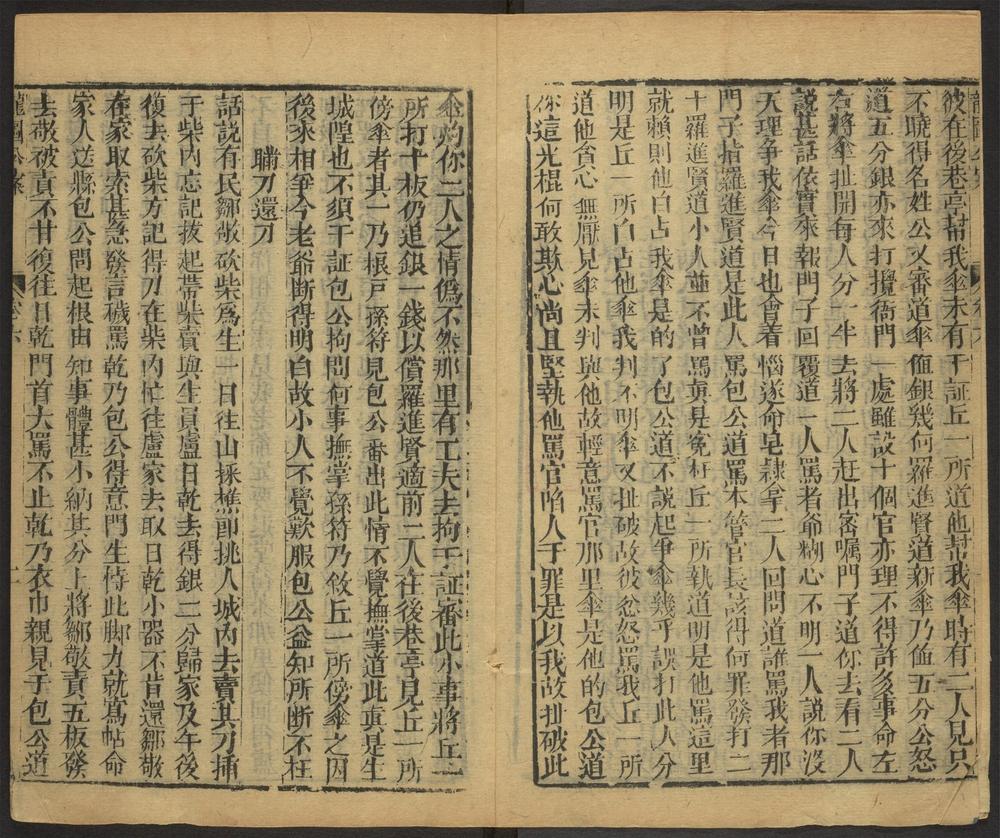 彼在後巷亭幇我傘未有干証丘一所道他幇我傘時有二人見只
不曉得名姓公又審道傘値銀幾何羅進賢道新傘乃値五分公怒
道五分銀亦來打攪衙門一處雖設十個官亦理不得許多事命左
右將傘扯開每人分一半去將二人赶出密嘱門子道你去看二人
説甚話依實來報門子回覆道一人罵者爺糊心不明一人説你沒
天理爭我傘今日也會着惱遂命皂隸拿二人回問道誰罵我者那
門子指羅進賢道是此人罵包公道罵本管官長該得何罪發打二
十羅進賢道小人並不曾罵眞是冤枉丘一所執道明是他罵這里
就賴則他白占我傘是的了包公道不説起爭傘幾乎誤打此人分
明是丘一所白占他傘我判不明傘又扯破故彼忿怒罵我丘一所
道他貪心無厭見傘未判與他故輕意罵官那里傘是他的包公道
你這光棍何敢欺心尚且堅執他罵官陷人于罪是以我故扯破此
傘灼你二人之情僞不然那里有工夫去拘干証審此小事將丘一
所打十板仍追銀一錢以償羅進賢適前二人在後巷亭見丘一所
傍傘者其一乃根戸孫符見包公番出此情不覺撫掌道此真是生
城隍也不須干証包公拘問何事撫掌孫符乃敘丘一所傍傘之因
後來相爭今老爺断得明白故小人不覺歎服包公益知所断不枉
騙刀還刀
話説有民鄒敬砍柴爲生一日往山採樵節挑入城內去賣其刀插
于柴內忘記拔起帶柴賣與生員盧日乾去得銀二分歸家及午後
復去砍柴方記得刀在柴內忙往盧家去取日乾小器不肯還鄒敬
在家取索甚急發言穢罵乾乃包公得意門生恃此脚力就寫帖命
家人送縣包公問起根由知事體甚小納其分上將鄒敬責五板發
去敬被責不甘復往日乾門首大罵不止乾乃衣巾親見于包公道